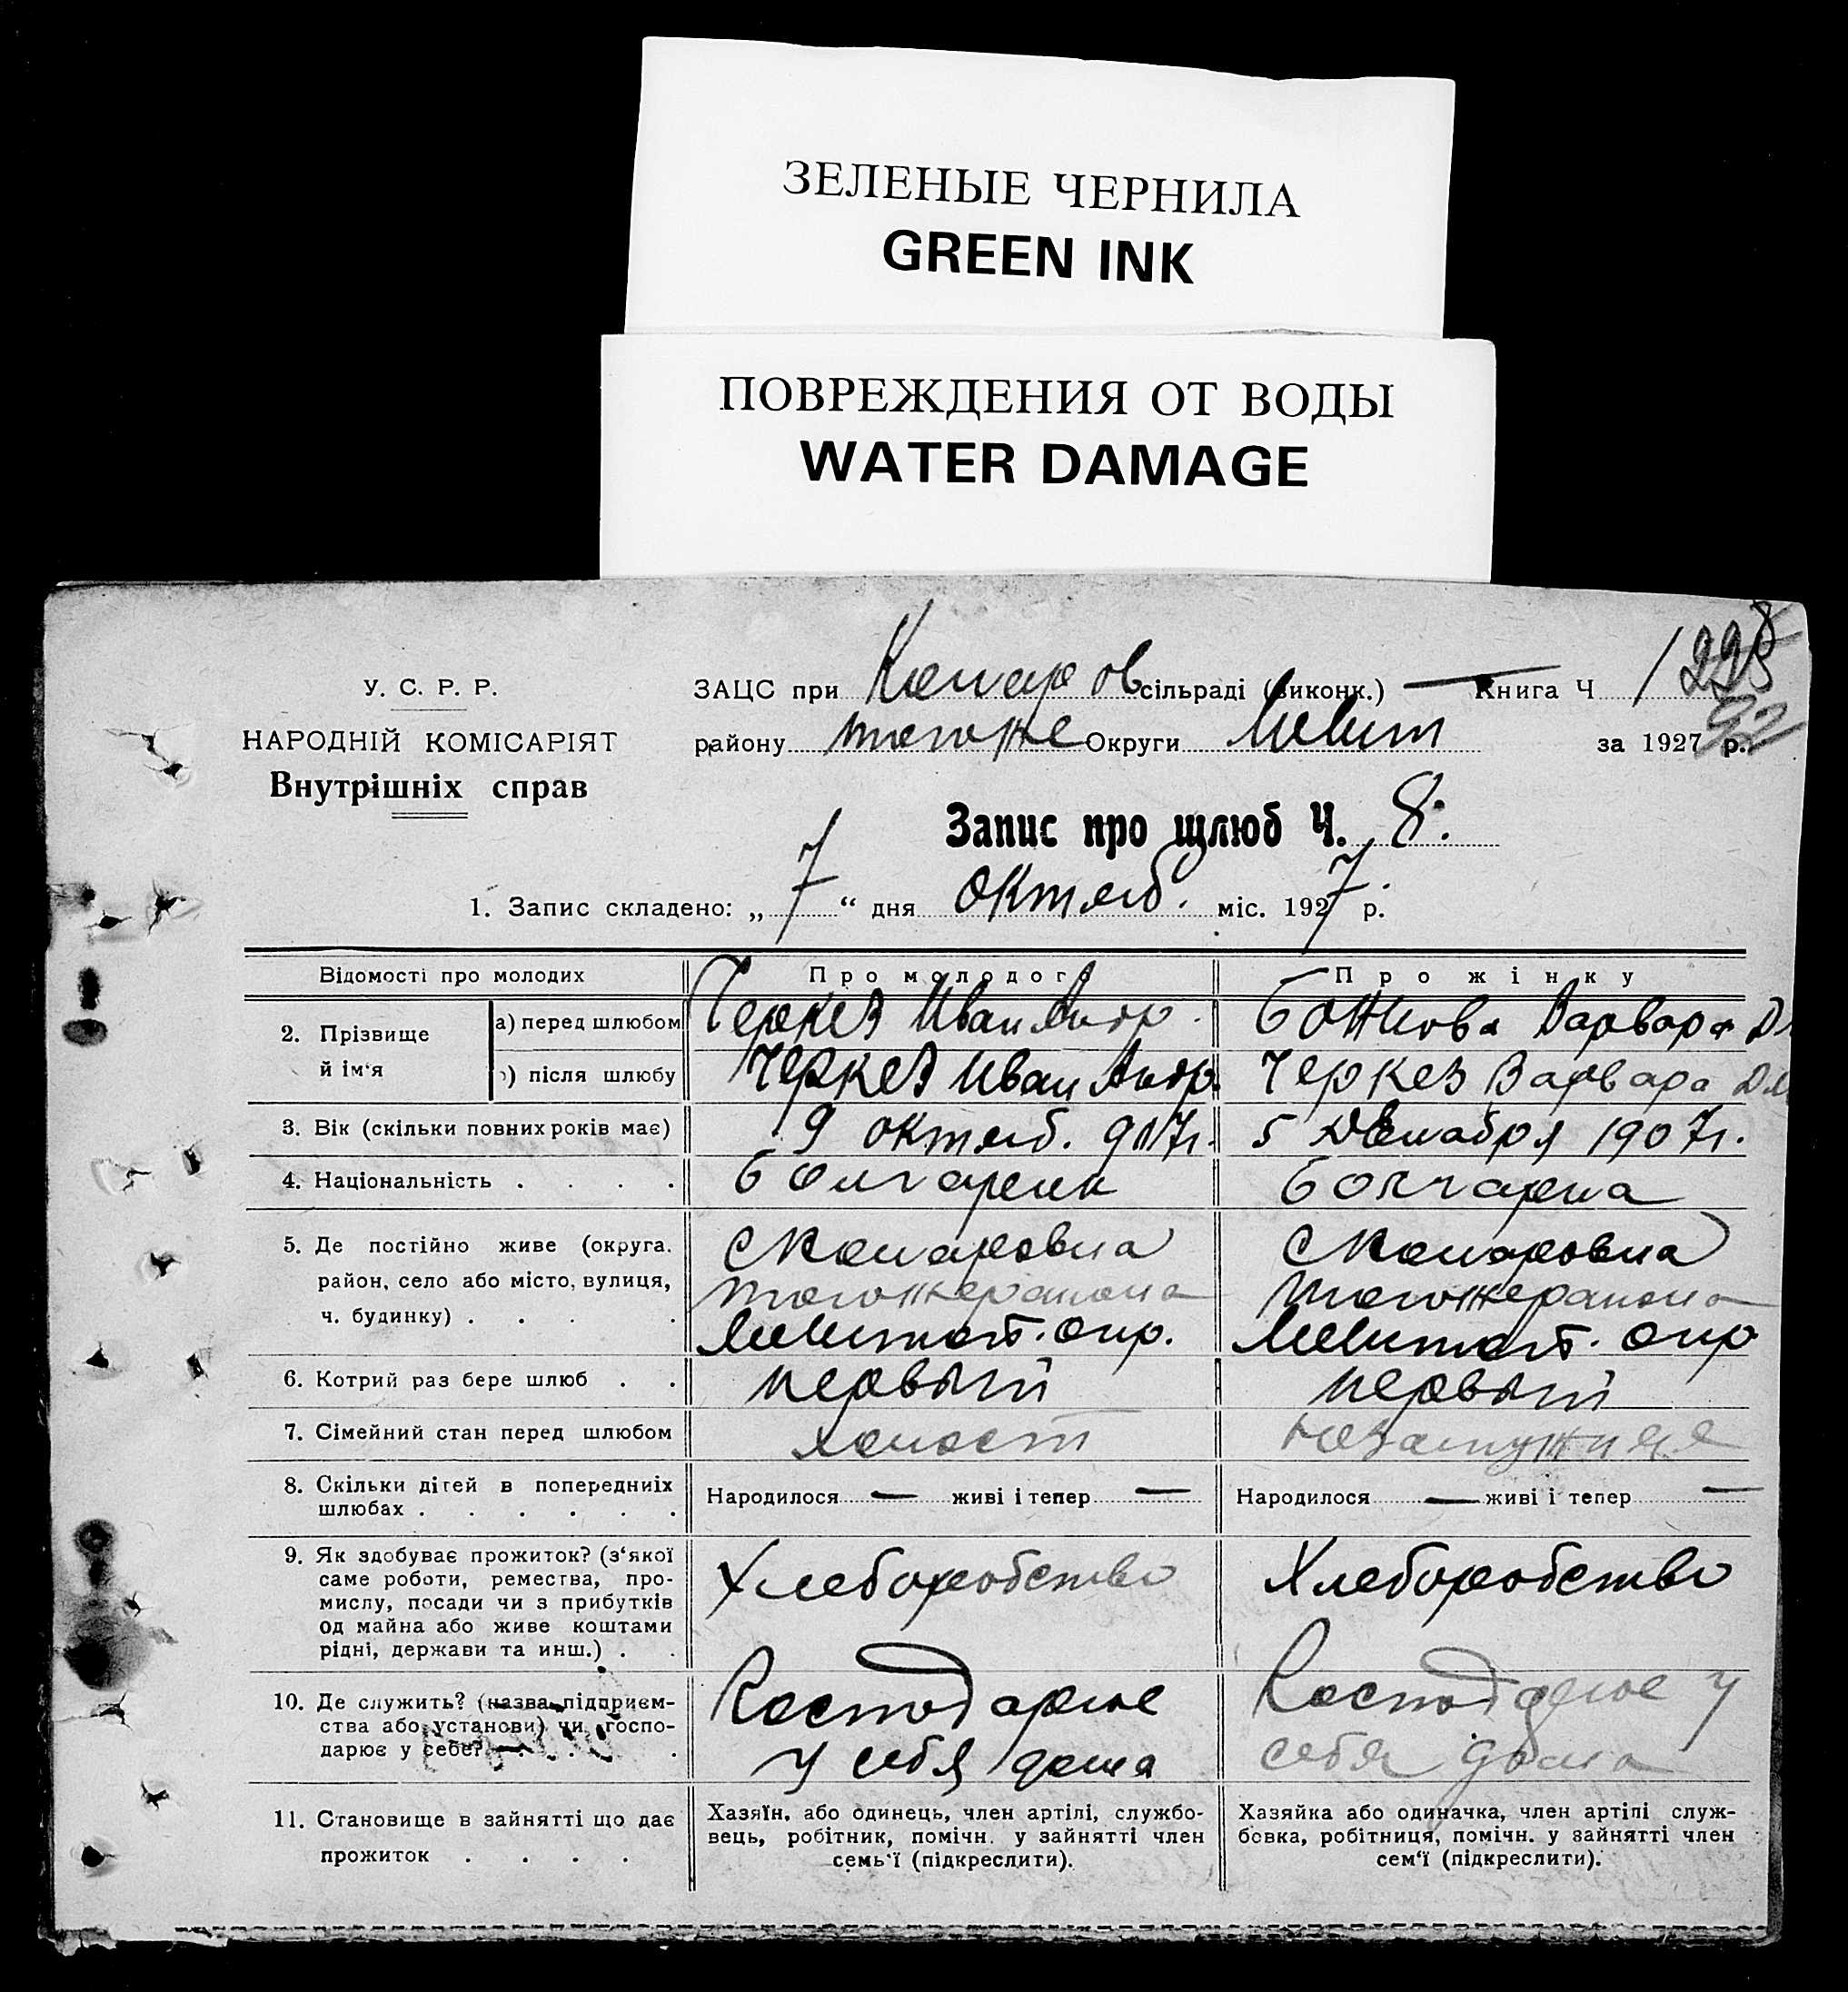 ЗЕЛЕНЫЕ ЧЕРНИЛА
GREEN INK
ПОВРЕЖДЕНИЯ ОТ ВОДЫ
WATER DAMAGE
У. С. Р. Р.
НАРОДНІЙ КОМІСАРІЯТ
Внутрішніх справ
ЗАЦС при Комаров сільраді (виконк.) — Книга Ч 1
району тогоже Округи Мелит за 1927 р.
Запис про щлюб Ч. 8.
1. Запис складено: „ 7 “ дня октяб. міс. 1927 р.
Відомості про молодих Про молодого Про жінку
2. Прізвище й ім‘я
а) перед шлюбом Черкез Иван Андр. Божкова Варвара
б) після шлюбу Черкез Иван Андр. Черкез Варвара
3. Вік (скільки повних років має) 9 октяб. 907г. 5 Декабря 1907г.
4. Національність . . . . Болгарин Болгарка
5. Де постійно живе (округа, район, село або місто, вулиця, ч. будинку) . . . .
С Комаровка С Комаровка
тогожерайона тогожерайона
Мелитоп. окр. Мелитоп. окр
6. Котрий раз бере шлюб . . первый первый
7. Сімейний стан перед шлюбом холост незамужняя
8. Скільки дітей в попередніх шлюбах . . . . . .
Народилося — живі і тепер — Народилося — живі і тепер —
9. Як здобуває прожиток? (з‘якої
саме роботи, ремества, про-
мислу, посади чи з прибутків
од майна або живе коштами
рідні, держави та инш.) . .
Хлеборобство Хлеборобство
10. Де служить? (назва підприєм-
ства або установи) чи госпо-
дарює у себе? . . . .
Господарює Господарює у
у себя дома себя дома
11. Становище в зайнятті що дає
прожиток . . . .
Хазяїн, або одинець, член артілі, службо-
вець, робітник, помічн. у зайнятті член
семь‘ї (підкреслити).
Хазяйка або одиначка, член артілі служ-
бовка, робітниця, помічн. у зайнятті член
сем‘ї (підкреслити).